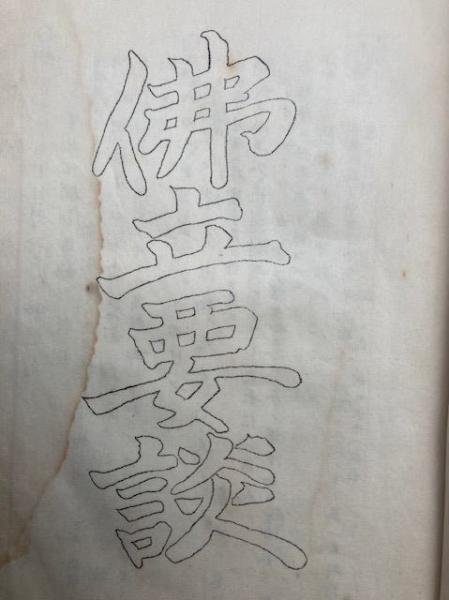 佛立要談